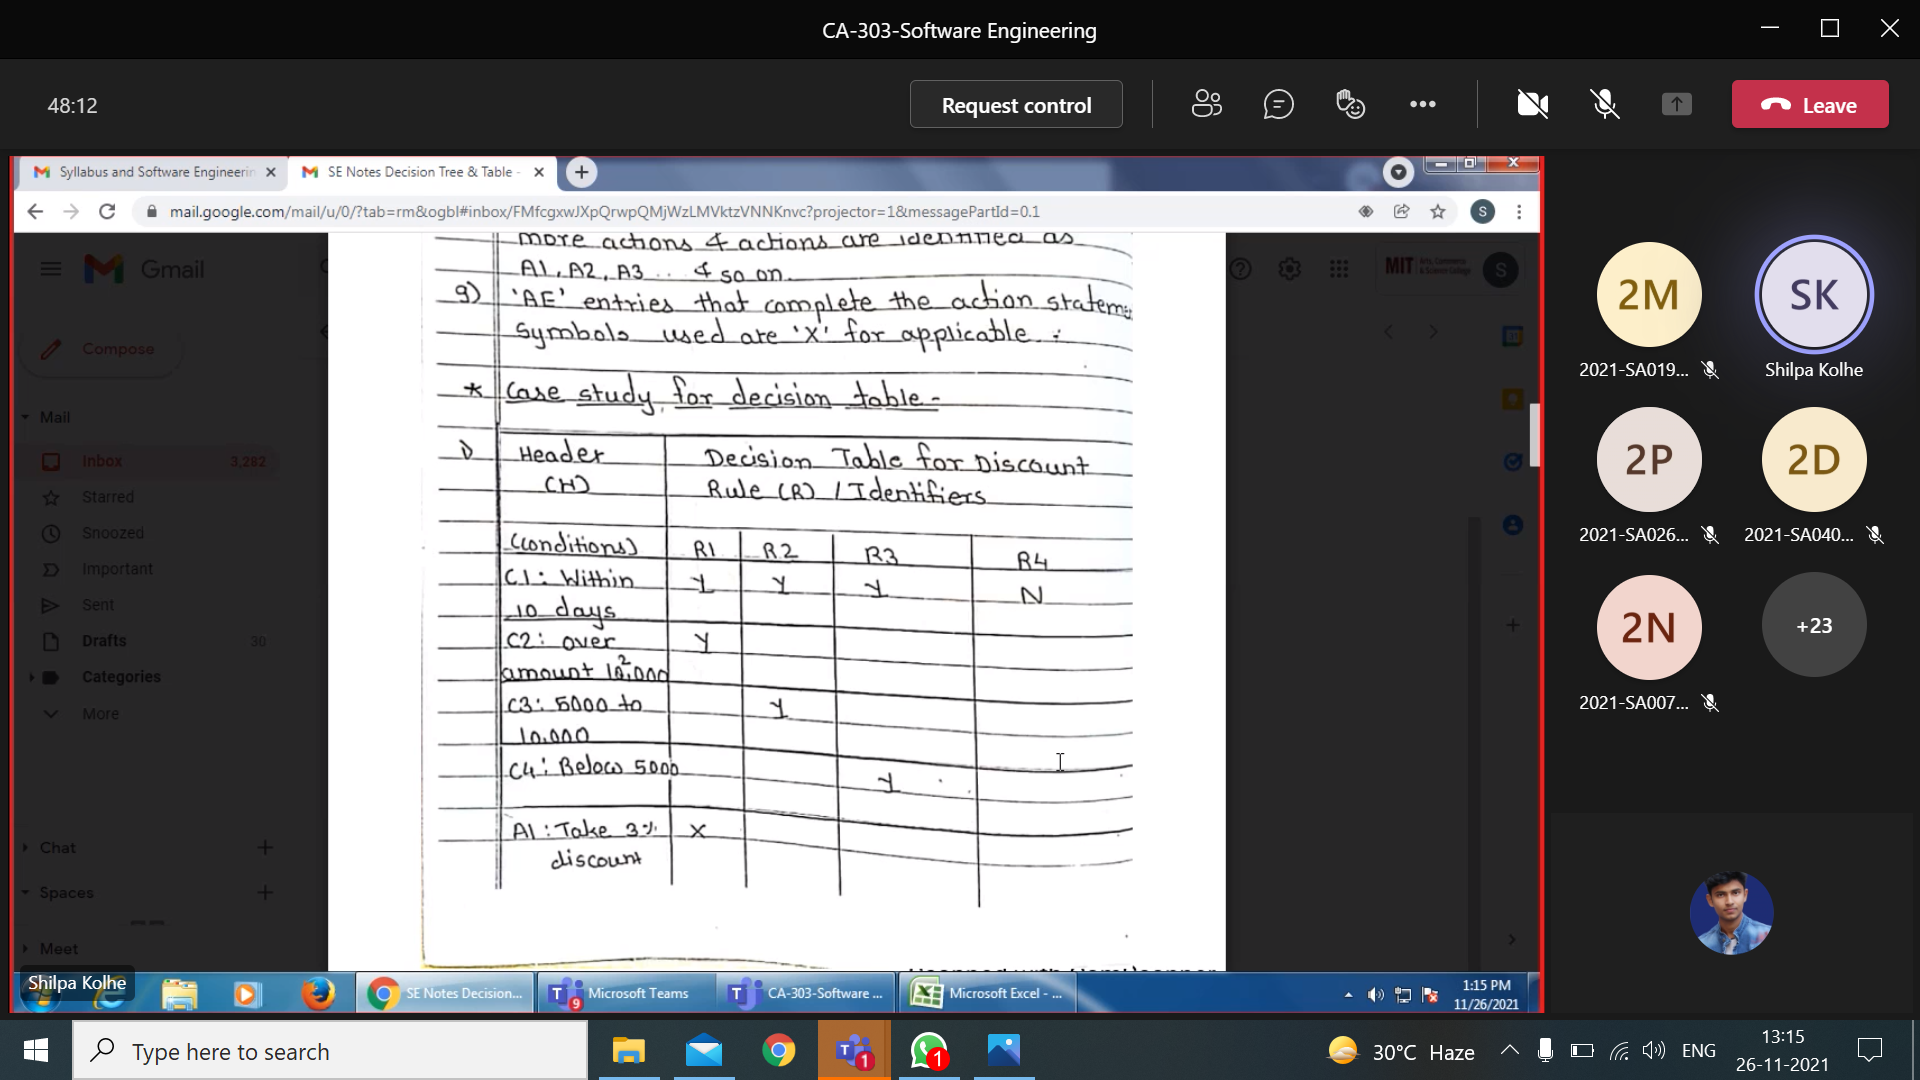 CA-303-Software Engineering
48:12
Request control
Leave
Syllabus and Software Engineerin
SE Notes Decision Tree & Table -
mail.google.com/mail/u/0/?tab=rm&ogbl#inbox/FMfcgxwJXpQrwpQMjWzLMVktzVNNKnvc?projector=1&messagePartId=0.1
S
Gmail
MIT Arts, Commerce & Science College
S
Compose
Mail
Inbox 3,282
Starred
Snoozed
Important
Sent
Drafts 30
Categories
More
Chat
Spaces
Meet
more actions & actions are identified as
A1, A2, A3 .. & so on.
9) 'AE' entries that complete the action statem
symbols used are 'X' for applicable.
* Case study for decision table -
1) Header Decision Table for Discount
(H) Rule (R) / Identifiers
(conditions) R1 R2 R3 R4
C1: Within Y Y Y N
10 days
C2: over Y
amount 10,000
C3: 5000 to Y
10,000
C4: Below 5000 Y
A1: Take 3% X
discount
2M
2021-SA019...
SK
Shilpa Kolhe
2P
2021-SA026...
2D
2021-SA040...
2N
2021-SA007...
+23
Shilpa Kolhe
SE Notes Decision...
9
Microsoft Teams
CA-303-Software ...
Microsoft Excel - ...
1:15 PM
11/26/2021
Type here to search
1
1
30°C Haze
ENG
13:15
26-11-2021